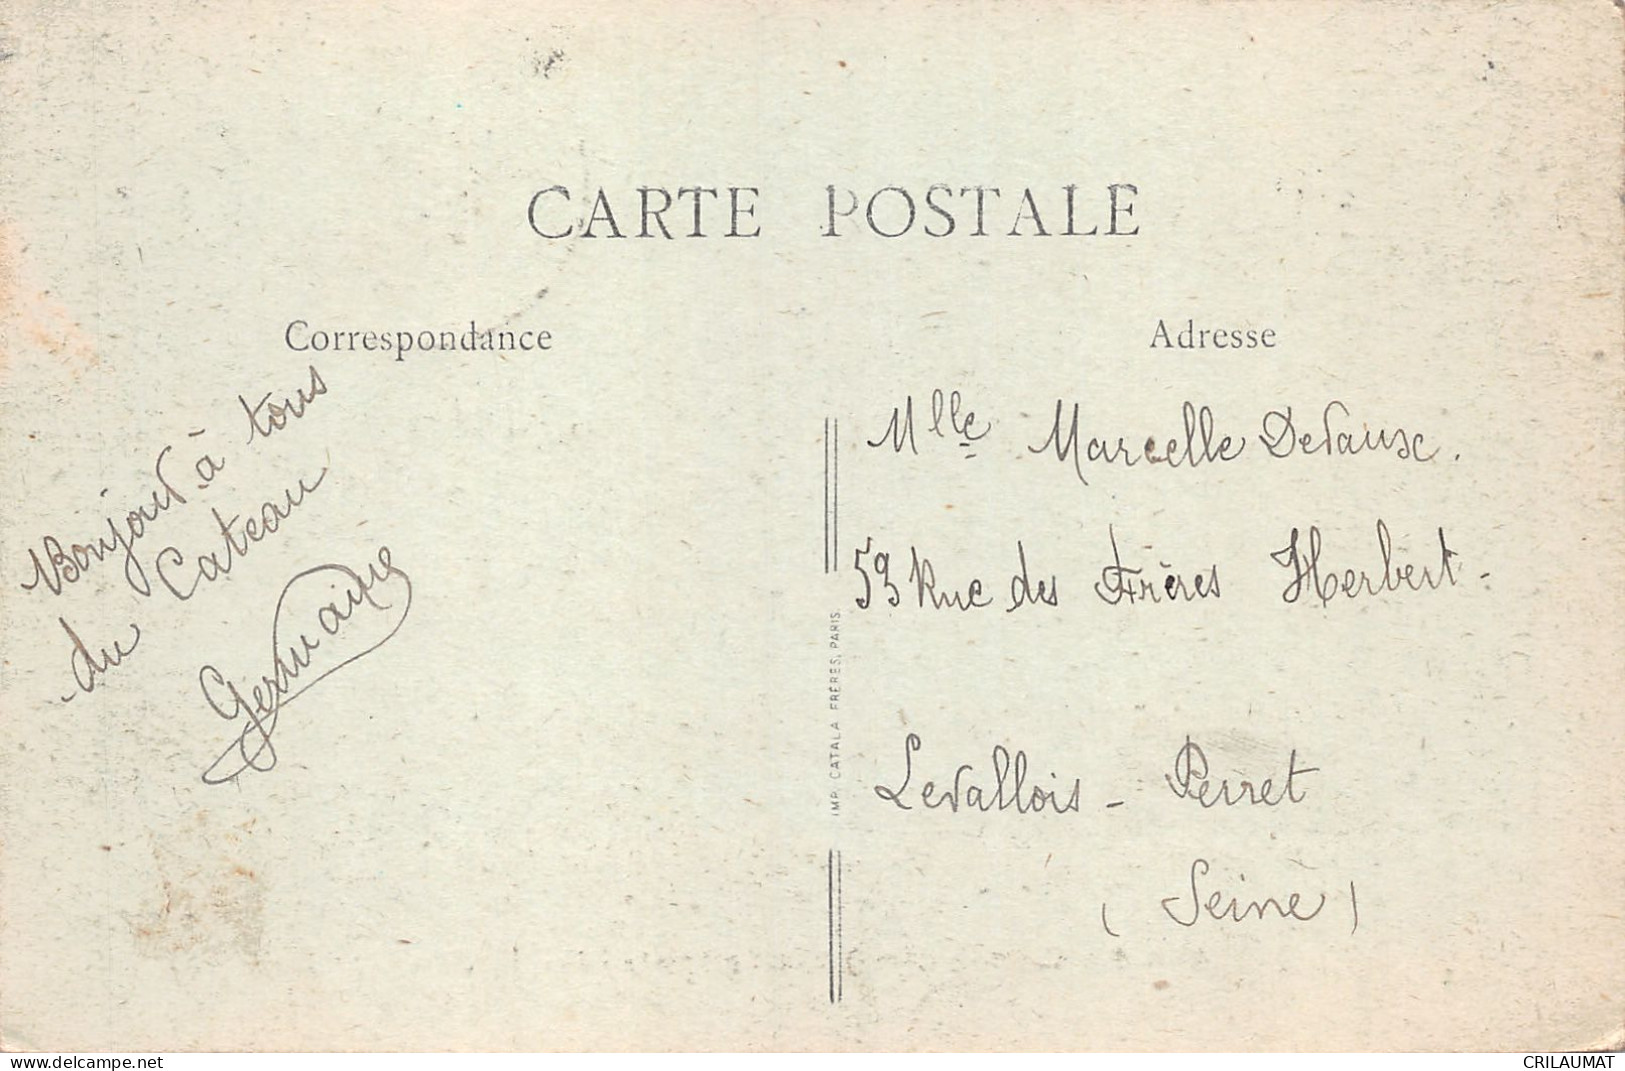 CARTE POSTALE
Correspondance
Adresse
Bonjour à tous
du Cateau
Germaine
Mlle Marcelle Devaux.
53 Rue des Frères Herbert-
Levallois - Perret
(Seine)
IMP. CATALA FRÈRES, PARIS
www.delcampe.net
CRILAUMAT